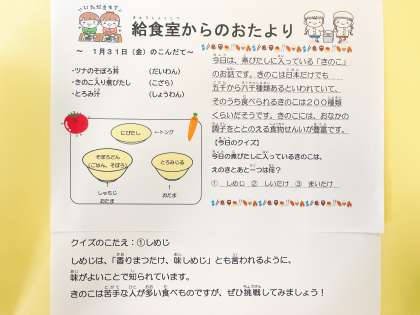 いただきます。
給食室からのおたより
きゅうしょくしつ
～ 1月31日（金）のこんだて～
・ツナのそぼろ丼 （だいわん）
・きのこ入り煮びたし （こざら）
・とろみ汁 （しょうわん）
にびたし
←トング
そぼろどん
（ごはん、そぼろ）
とろみじる
↑
しゃもじ
おたま
↑
おたま
今日は、煮びたしに入っている「きのこ」
のお話です。きのこは日本だけでも
五千から六千種類あるといわれていて、
そのうち食べられるきのこは２００種類
くらいだそうです。きのこには、おなかの
調子をととのえる食物せんいが豊富です。
【今日のクイズ】
今日の煮びたしに入っているきのこは、
えのきとあと一つは何？
① しめじ ② しいたけ ③ まいたけ
クイズのこたえ：①しめじ
しめじは、「香りまつたけ、味しめじ」とも言われるように、
味がよいことで知られています。
きのこは苦手な人が多い食べものですが、ぜひ挑戦してみましょう！